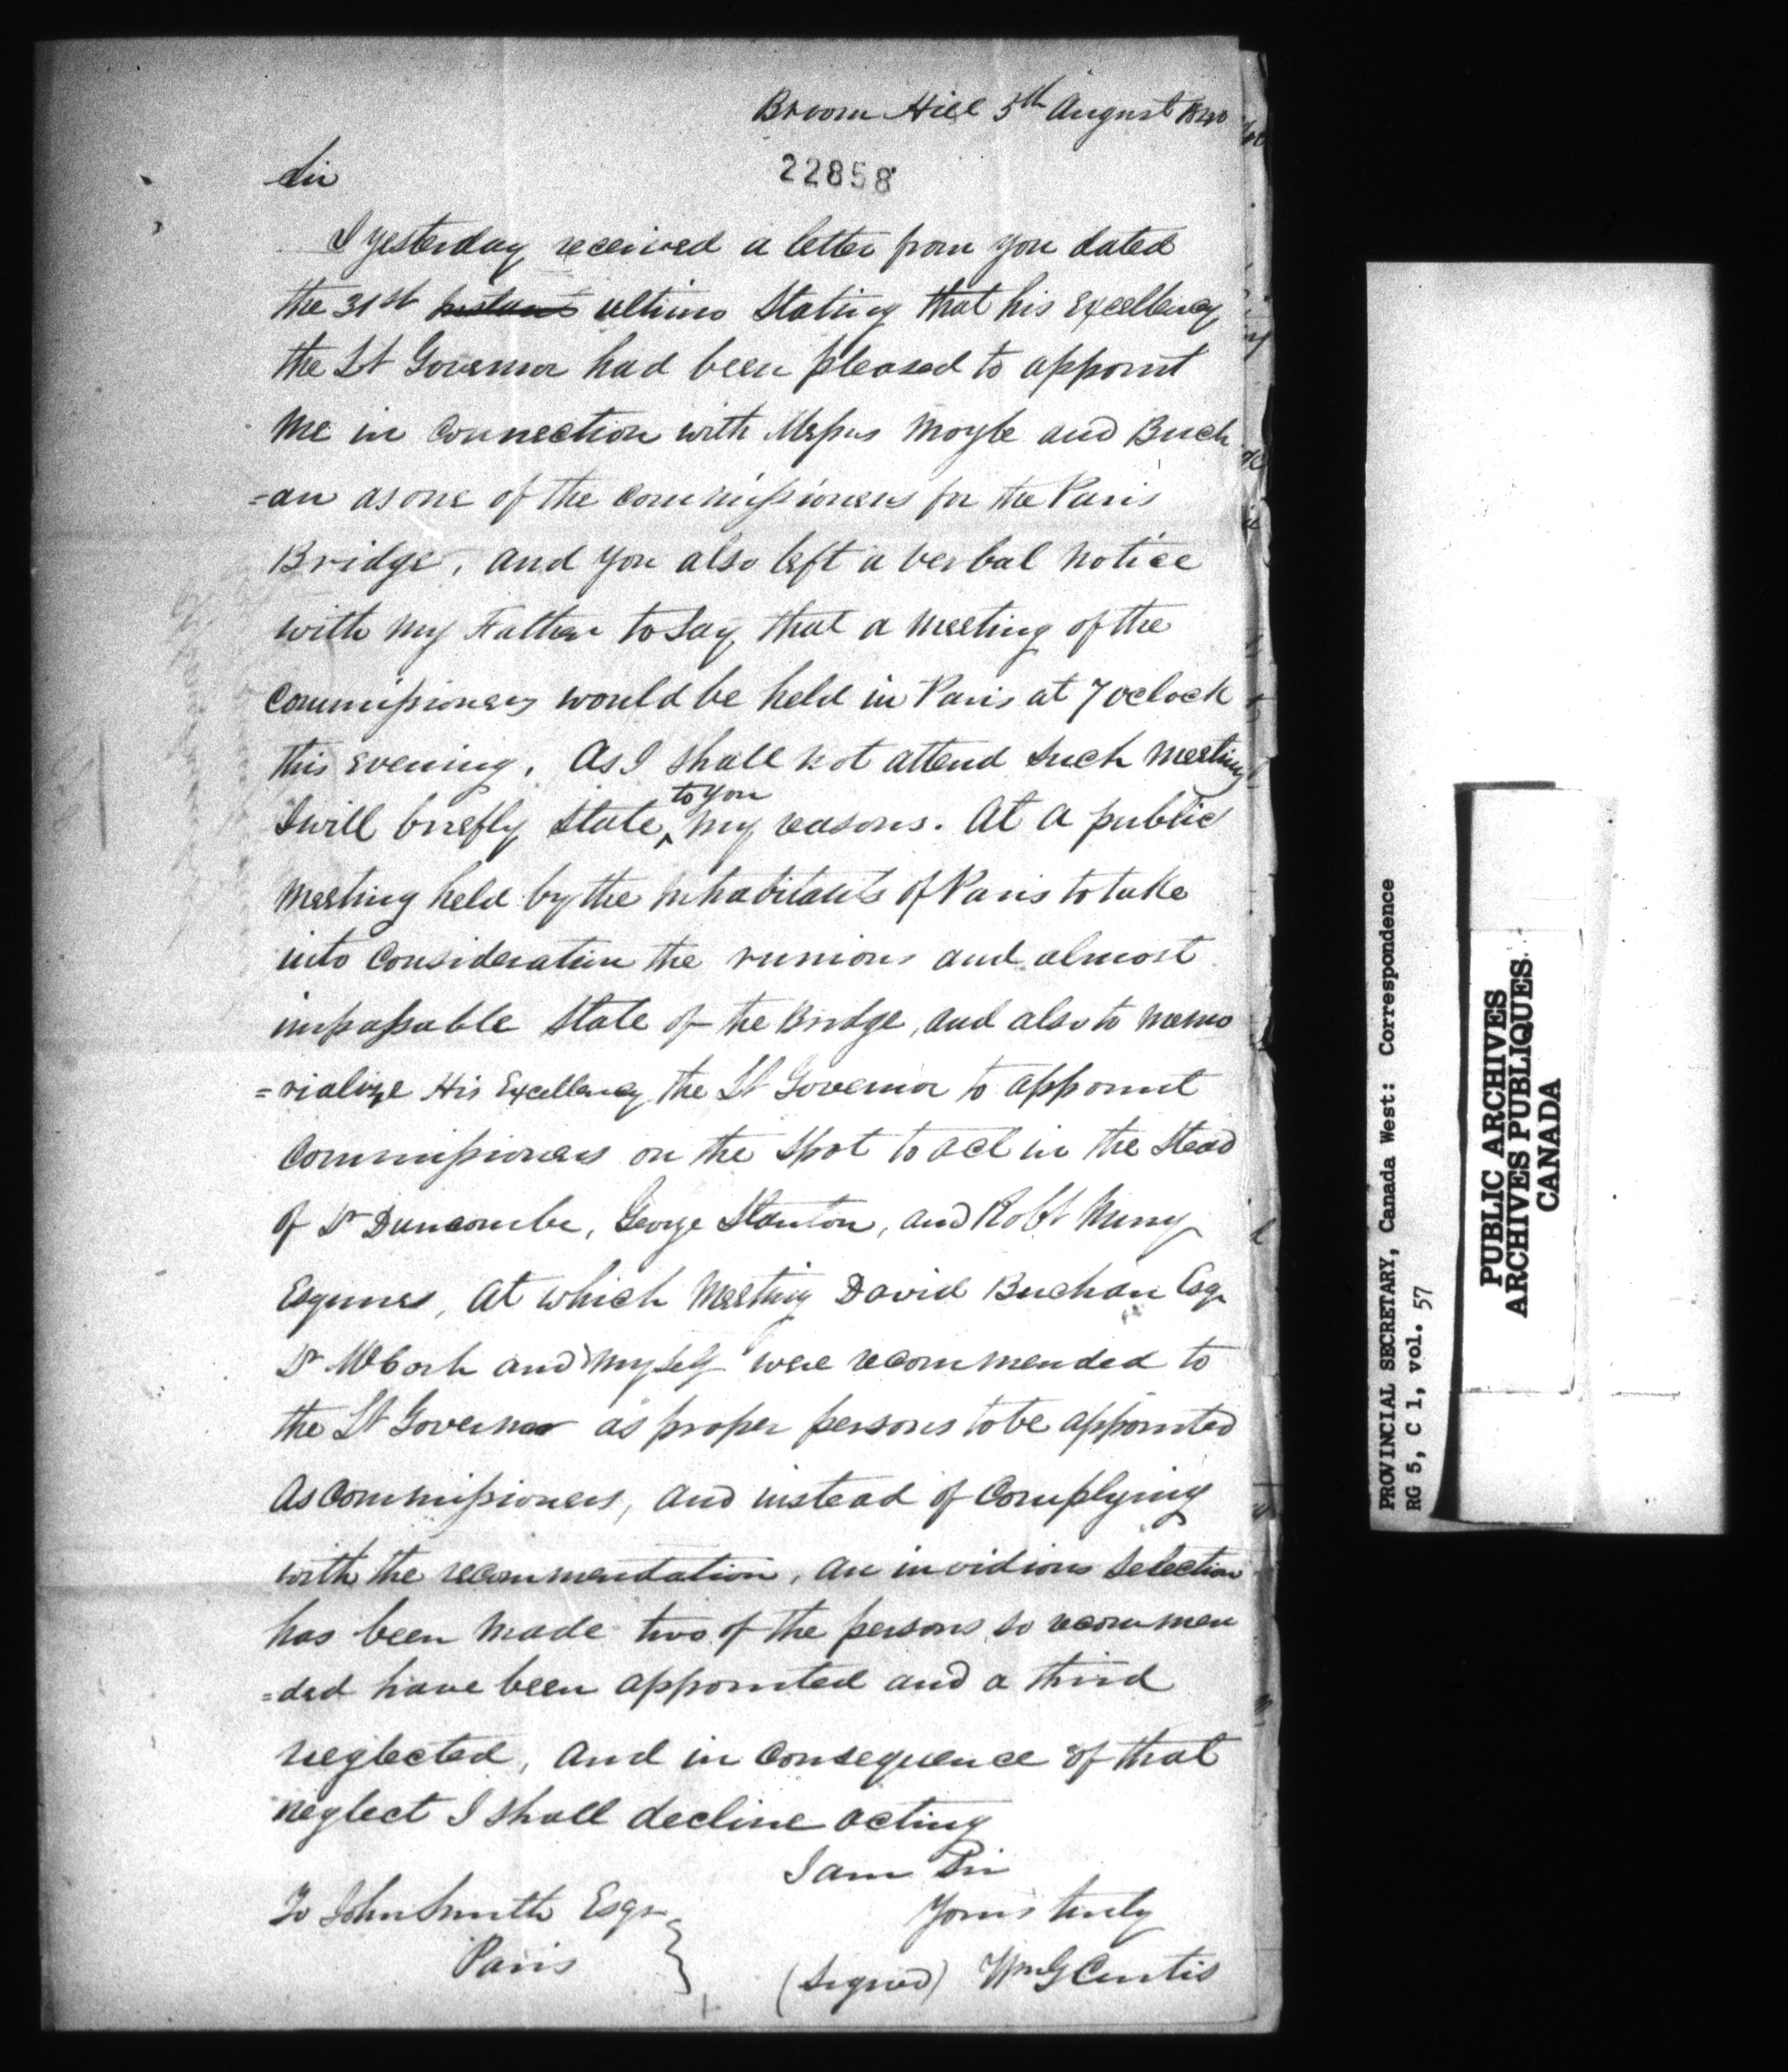 Broom Hill 5th August 1840
22858
Sir
I yesterday received a letter from you dated
the 31st instant ultimo Stating that his Excellency
the Lt Governor had been pleased to appoint
me in Connection with Messrs Moyle and Buch
=an as one of the Commissioners for the Paris
Bridge, and you also left a verbal notice
with my Father to say that a meeting of the
Commissioners would be held in Paris at 7 oclock
this evening. As I shall not attend such meeting
I will briefly State to you my reasons. At a public
meeting held by the inhabitants of Paris to take
into Consideration the ruinous and almost
impassable State of the Bridge, and also to memo
=rialize His Excellency the Lt Governor to appoint
Commissioners on the Spot to act in the Stead
of Dr Duncombe, George Stanton, and Robt
Esquires, at which Meeting David Buchan Esqr
Dr McCosh and myself were recommended to
the Lt Governor as proper persons to be appointed
As Commissioners, and instead of Complying
with the recommendation, an invidious Selection
has been made two of the persons so recommen
=ded have been appointed and a third
neglected, and in Consequence of that
neglect I shall decline acting
I am Sir
Yours truly
(Signed) Wm G Curtis
To John Smith Esqr
Paris
PROVINCIAL SECRETARY, Canada West: Correspondence
RG 5, C 1, vol. 57
PUBLIC ARCHIVES
ARCHIVES PUBLIQUES
CANADA